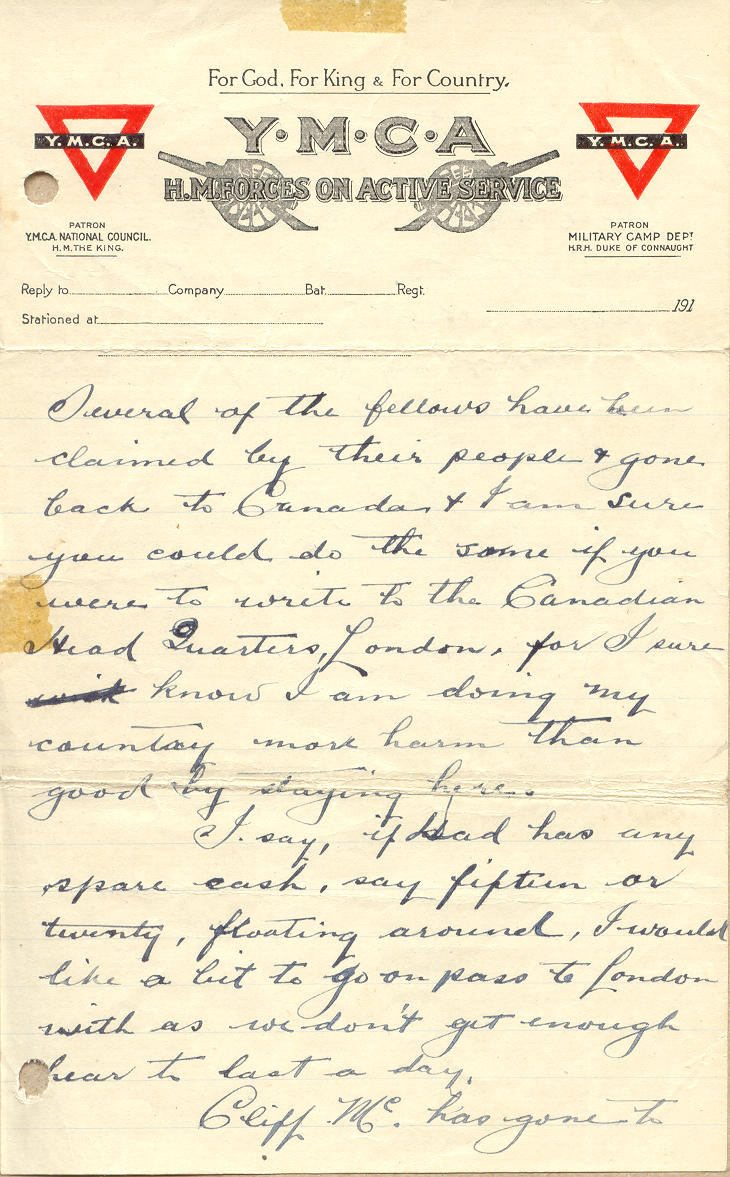 For God, For King & For Country.
Y·M·C·A
Y.M.C.A.
Y.M.C.A.
H.M. FORCES ON ACTIVE SERVICE
PATRON
Y.M.C.A. NATIONAL COUNCIL.
H.M. THE KING.
PATRON
MILITARY CAMP DEPT
H.R.H. DUKE OF CONNAUGHT
Reply to Company Bat. Regt.
191
Stationed at
Several of the fellows have been
claimed by their people & gone
back to Canada & I am sure
you could do the same if you
were to write to the Canadian
Head Quarters, London, for I sure
know I am doing my
country more harm than
good by staying here.
I say, if Dad has any
spare cash, say fifteen or
twenty, floating around, I would
like a bit to go on pass to London
with as we don't get enough
hear to last a day.
Cliff Mc. has gone to